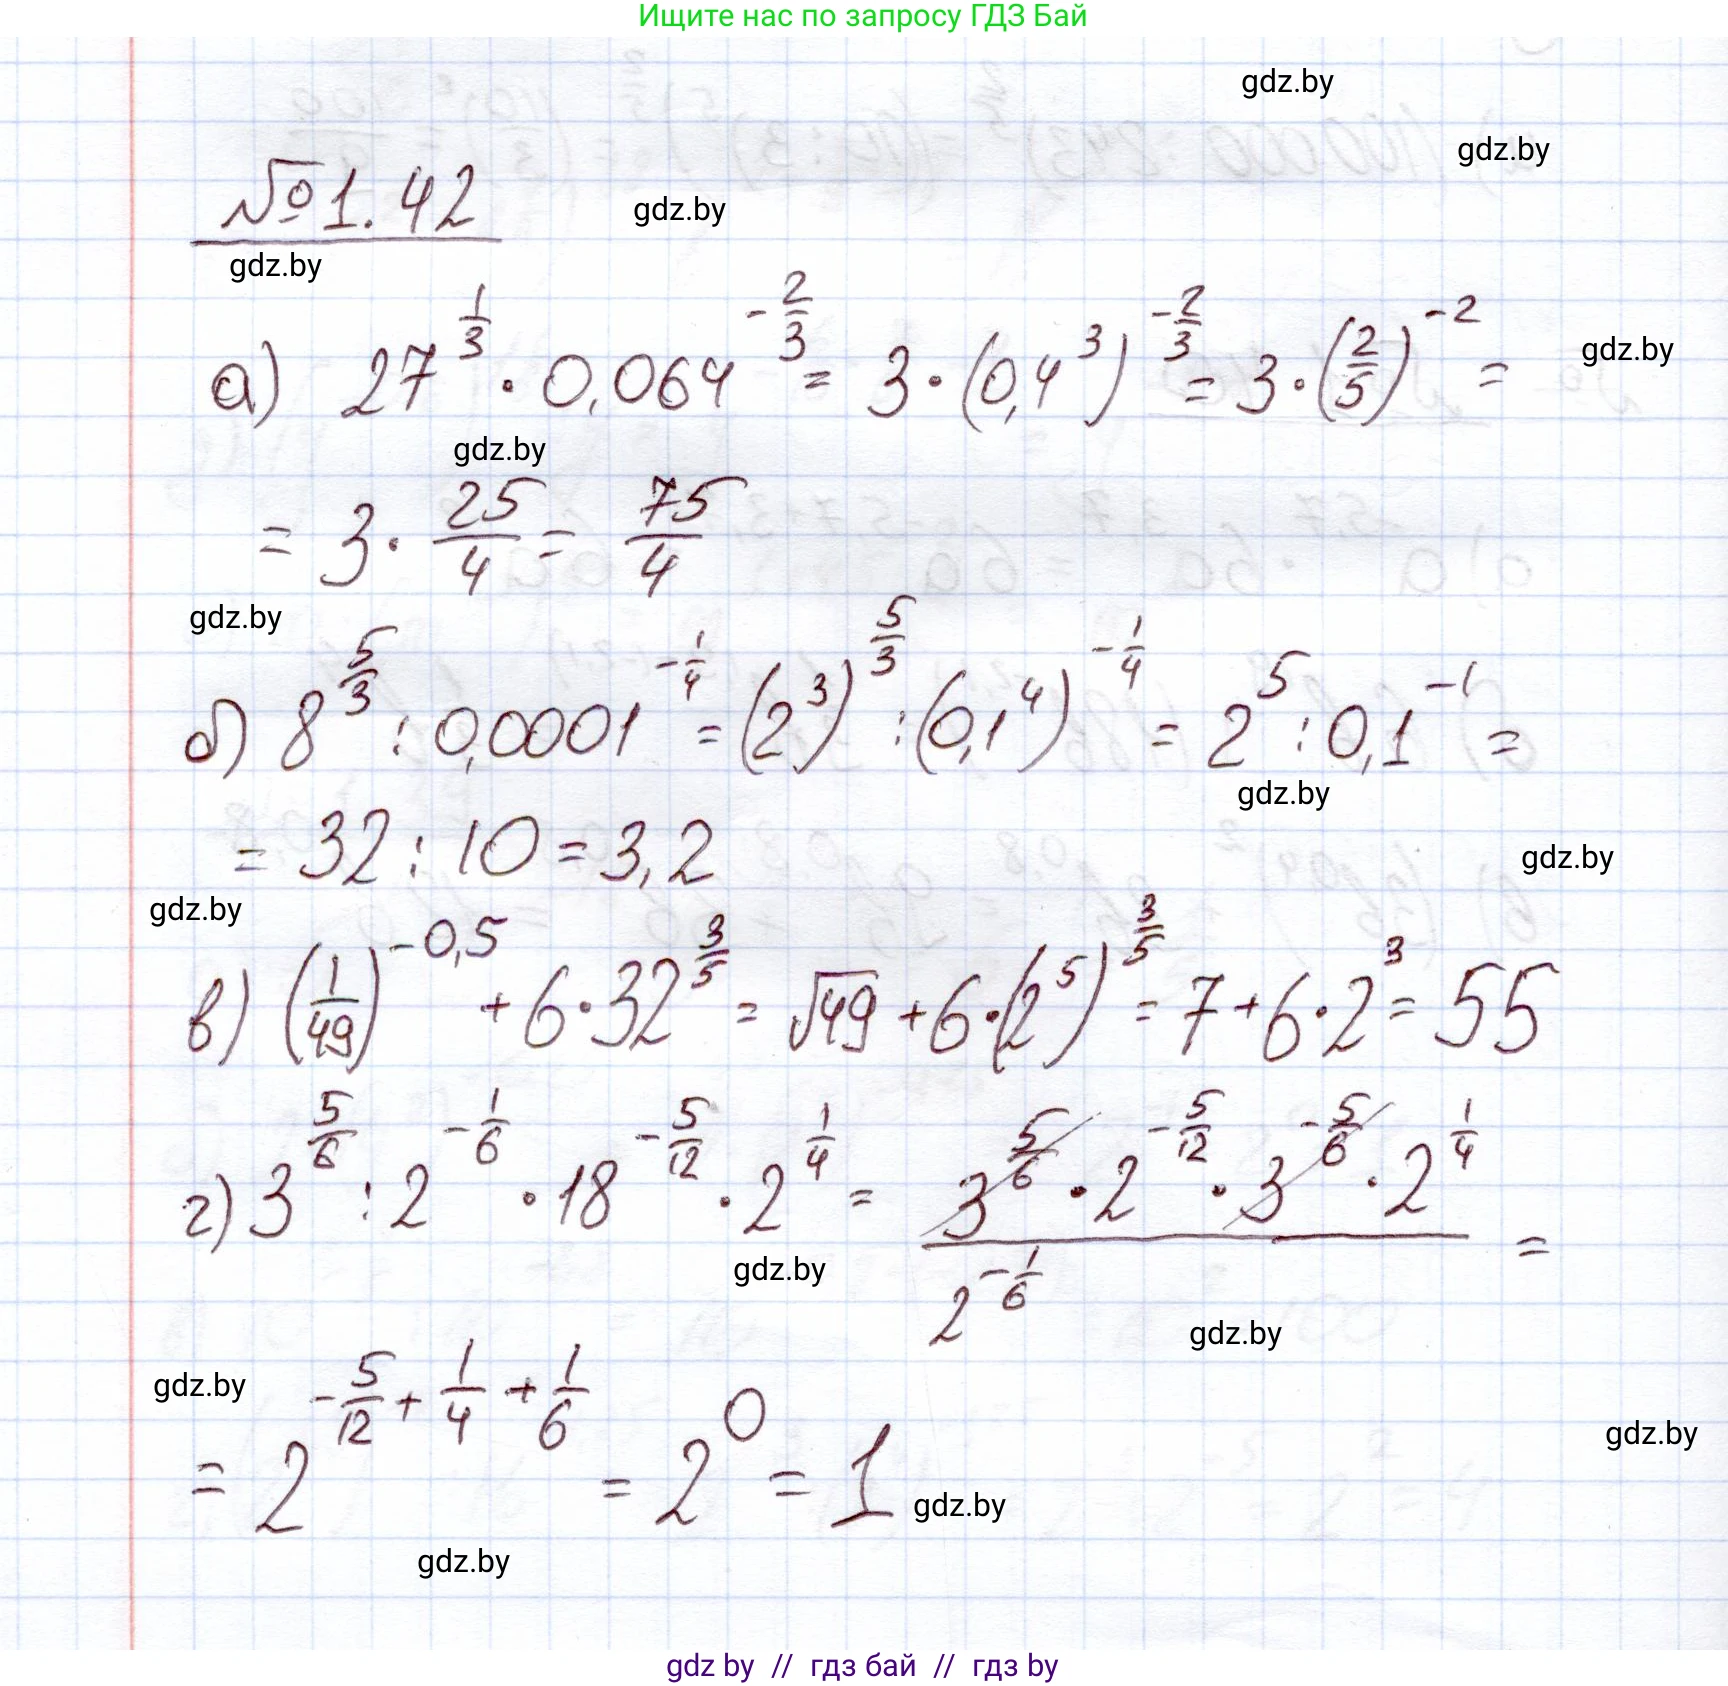 Ищите нас по запросу ГДЗ Бай
gdz.by
gdz.by
№1.42
gdz.by
gdz.by
а) 27^(1/3) · 0,064^(-2/3) = 3 · (0,4^3)^(-2/3) = 3 · (2/5)^(-2) =
gdz.by
gdz.by
= 3 · 25/4 = 75/4
gdz.by
б) 8^(5/3) : 0,0001^(-1/4) = (2^3)^(5/3) : (0,1^4)^(-1/4) = 2^5 : 0,1^(-1) =
gdz.by
= 32 : 10 = 3,2
gdz.by
gdz.by
в) (1/49)^(-0,5) + 6 · 32^(3/5) = √49 + 6 · (2^5)^(3/5) = 7 + 6 · 2^3 = 55
г) 3^(5/6) : 2^(-1/6) · 18^(-5/12) · 2^(1/4) = (3^(5/6) · 2^(-5/12) · 3^(-5/6) · 2^(1/4)) / 2^(-1/6) =
gdz.by
gdz.by
gdz.by
= 2^(-5/12 + 1/4 + 1/6) = 2^0 = 1
gdz.by
gdz.by
gdz.by
gdz by // гдз бай // гдз by